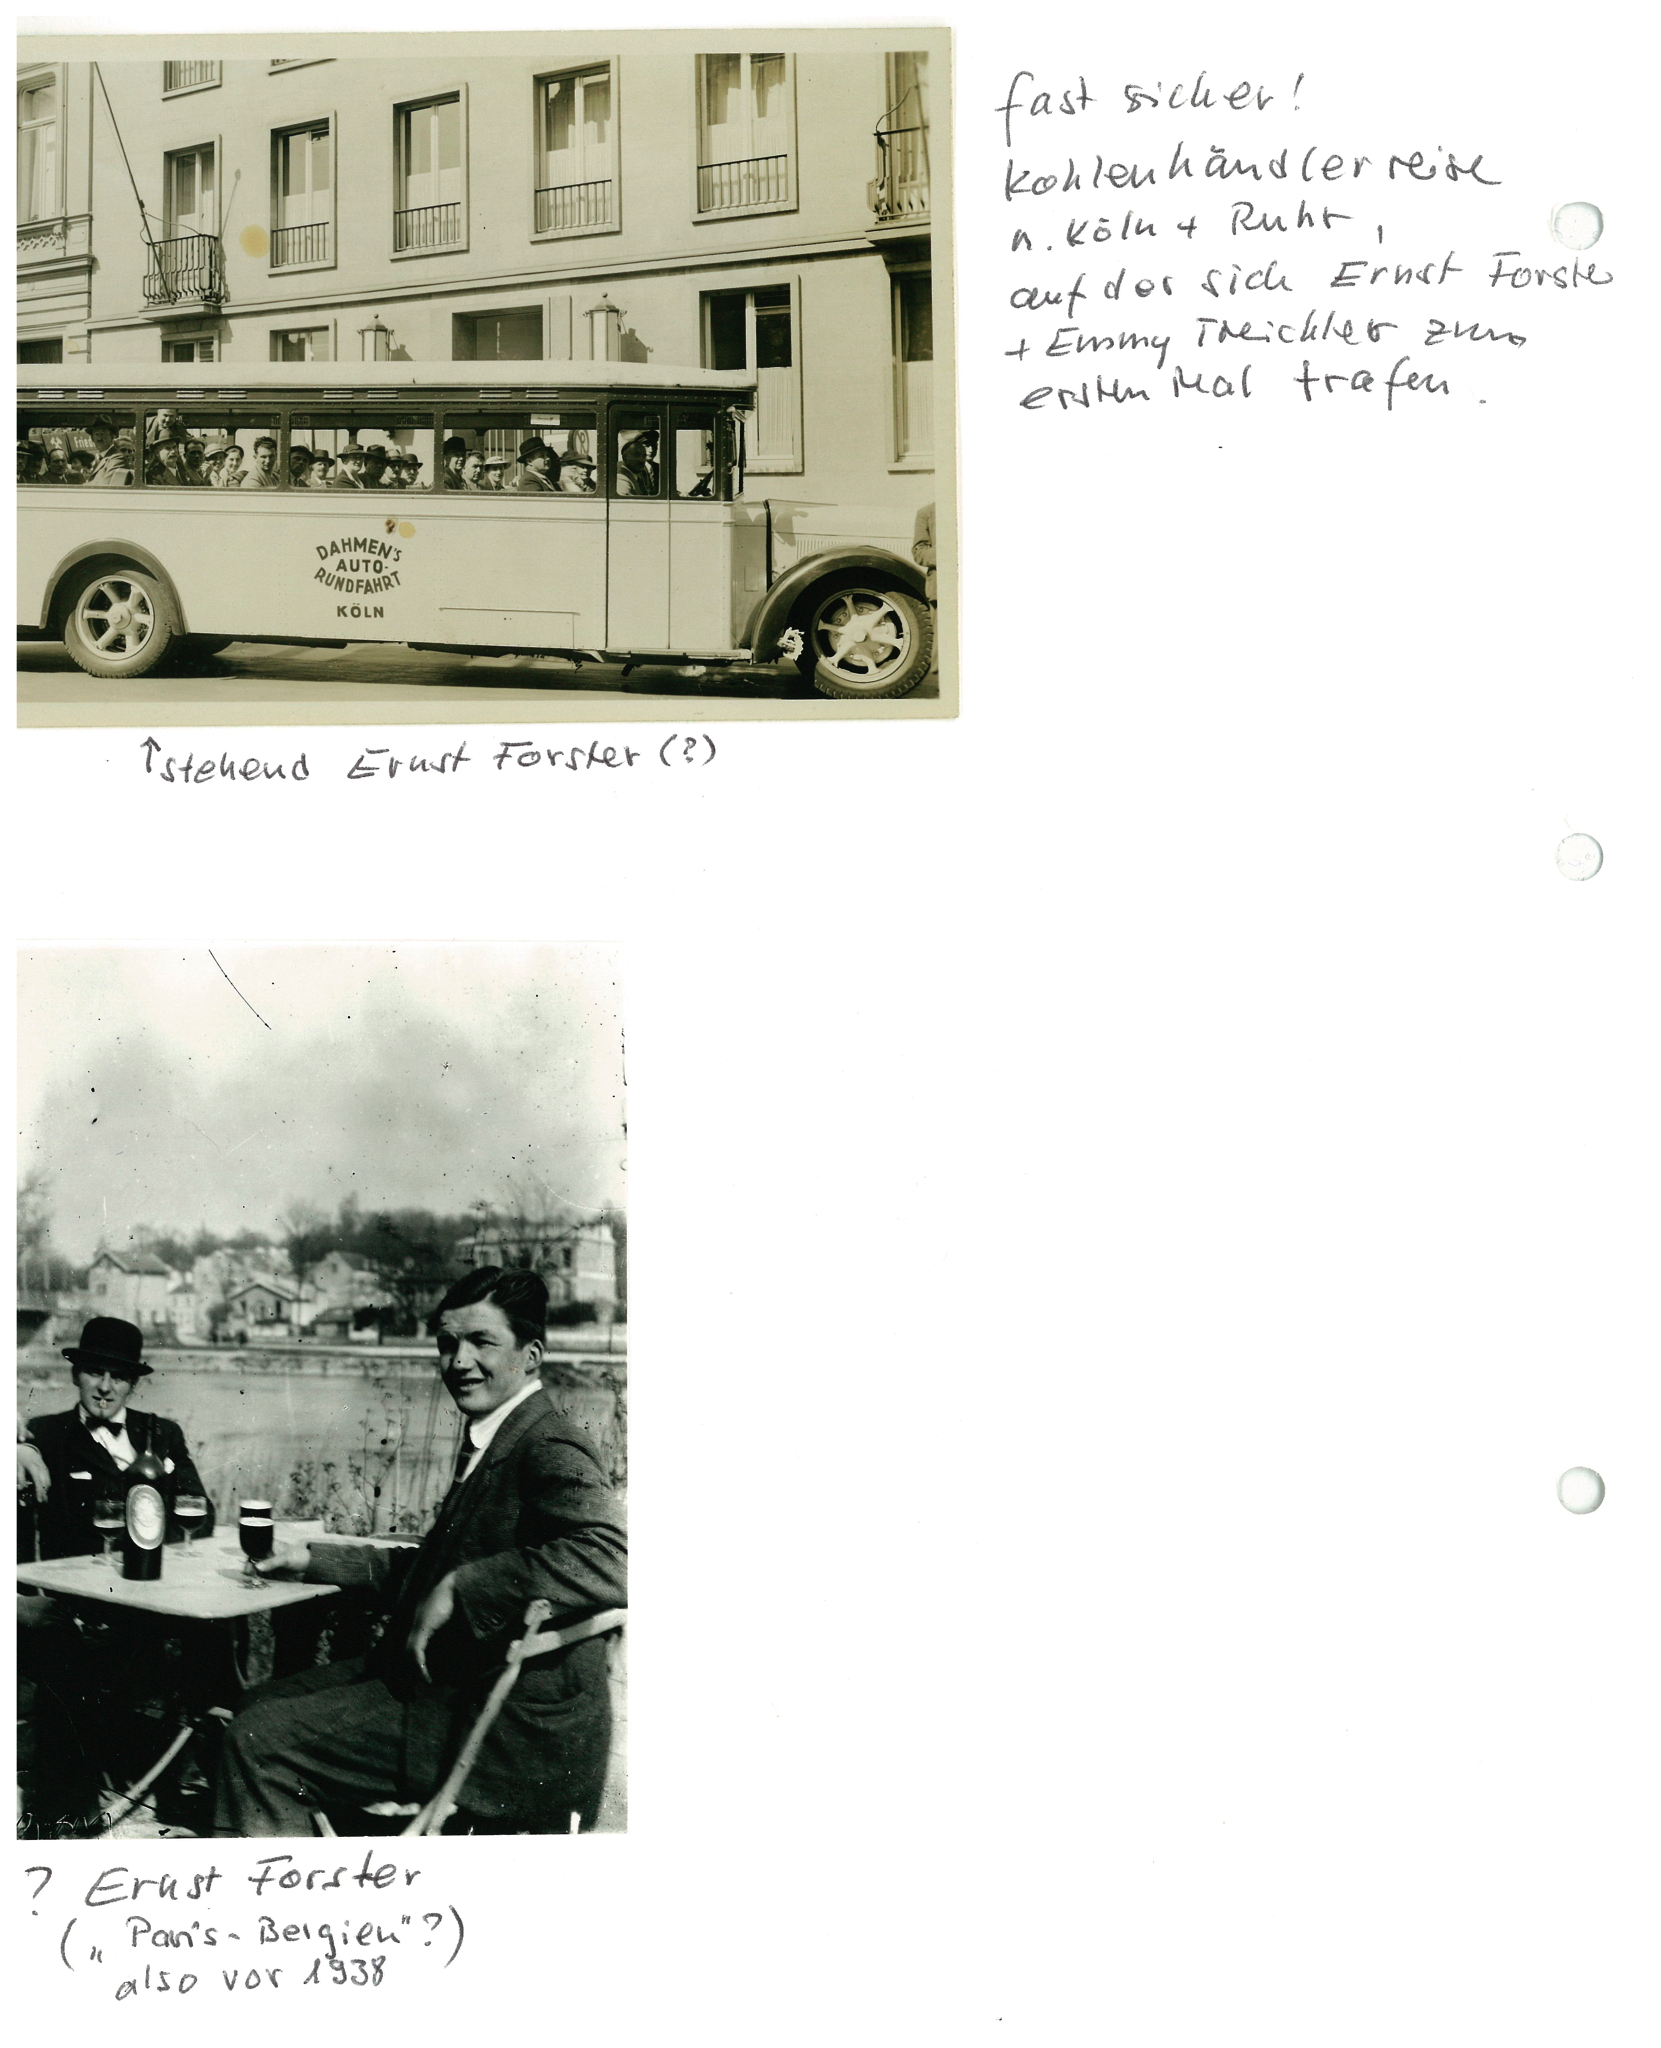 fast sicher!
Kohlenhändlerreise
n. Köln + Ruhr,
auf der sich Ernst Forster
+ Emmy Treichler zum
ersten Mal trafen.
Fried
DAHMEN'S
AUTO-
RUNDFAHRT
KÖLN
↑stehend Ernst Forster (?)
? Ernst Forster
("Paris-Belgien"?)
also vor 1938